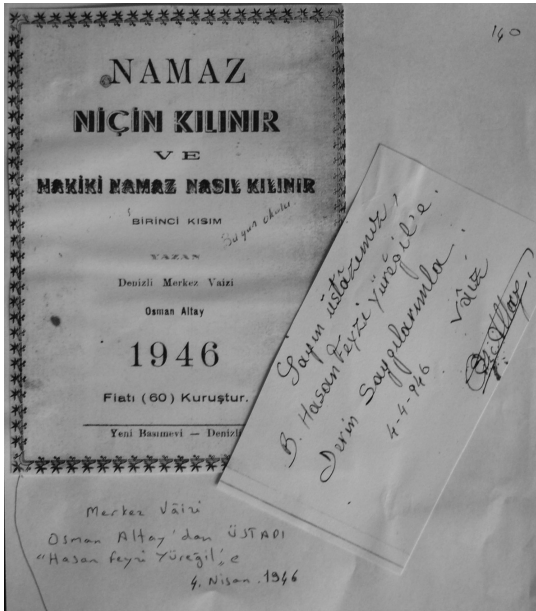 140
NAMAZ
NİÇİN KILINIR
VE
HAKİKİ NAMAZ NASIL KILINIR
BİRİNCİ KISIM
YAZAN
Denizli Merkez Vaizi
Osman Altay
1946
Fiatı (60) Kuruştur.
Yeni Basımevi — Denizli
Sayın üstâzımız,
B. Hasan Feyzi Yüreğil'e.
Derin Saygılarımla.
4-4-946
Vâiz
Merkez Vâizi
Osman Altay'dan ÜSTADI
"Hasan Feyzi Yüreğil'e
4. Nisan.1946